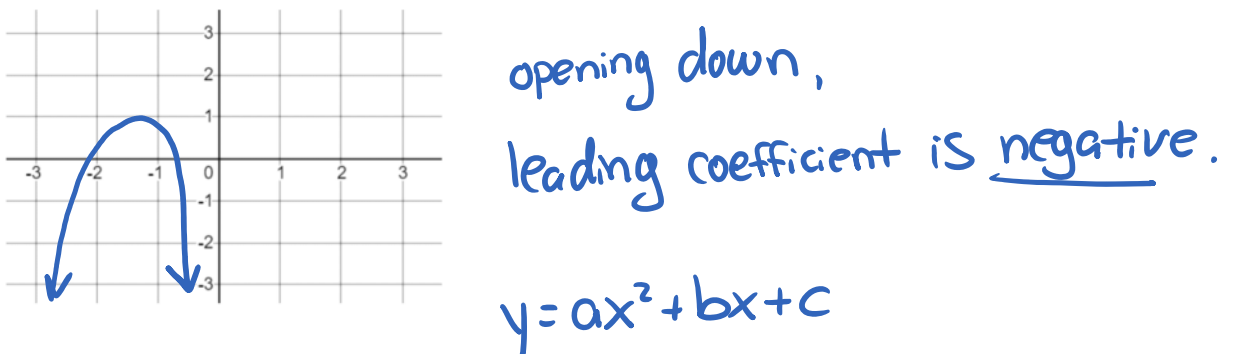 3
2
1
-3 -2 -1 0 1 2 3
-1
-2
-3
opening down,
leading coefficient is negative.
y=ax²+bx+c